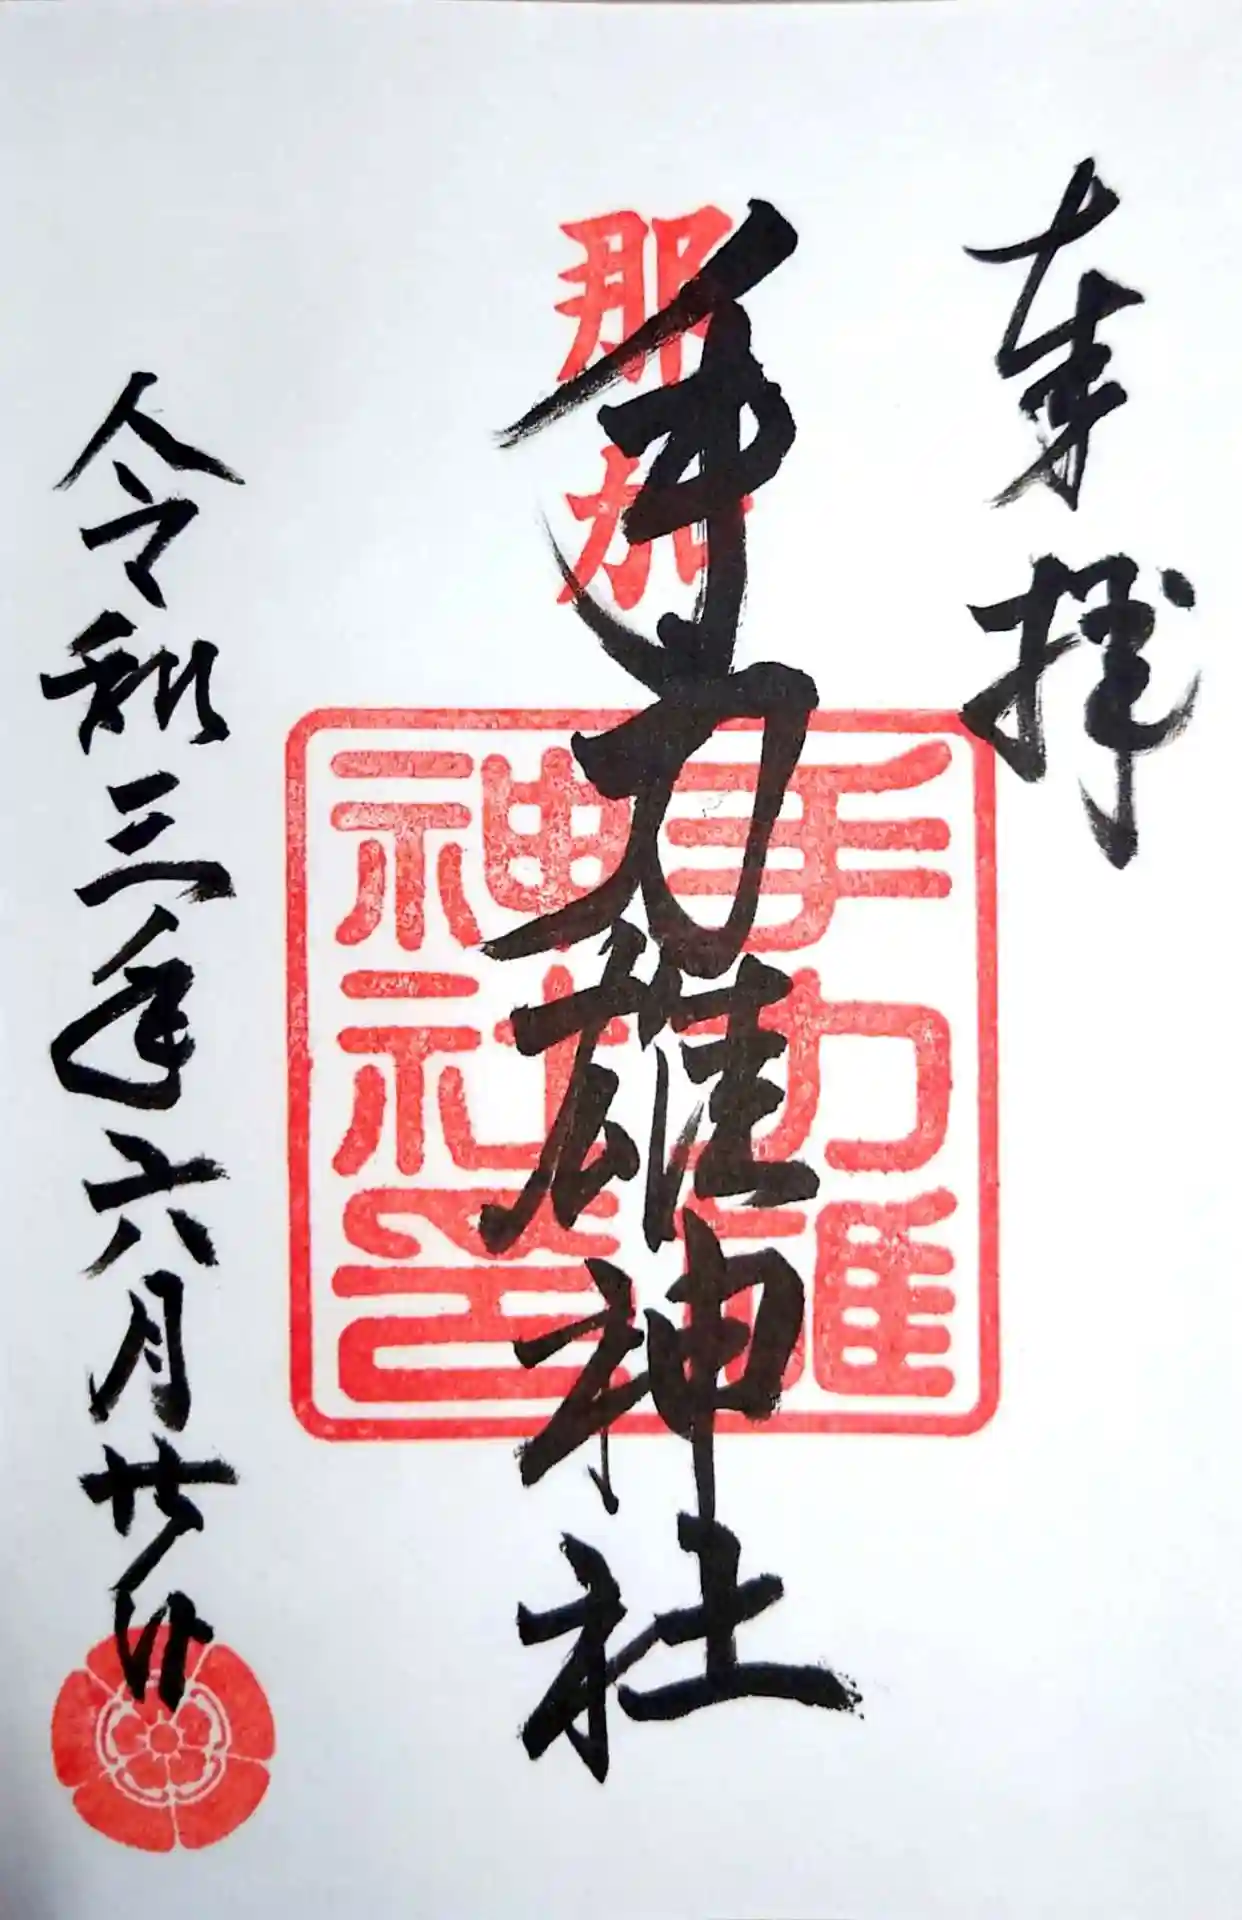 奉拝
那加
手力雄神社
手力雄
神社之印
令和三年六月廿日